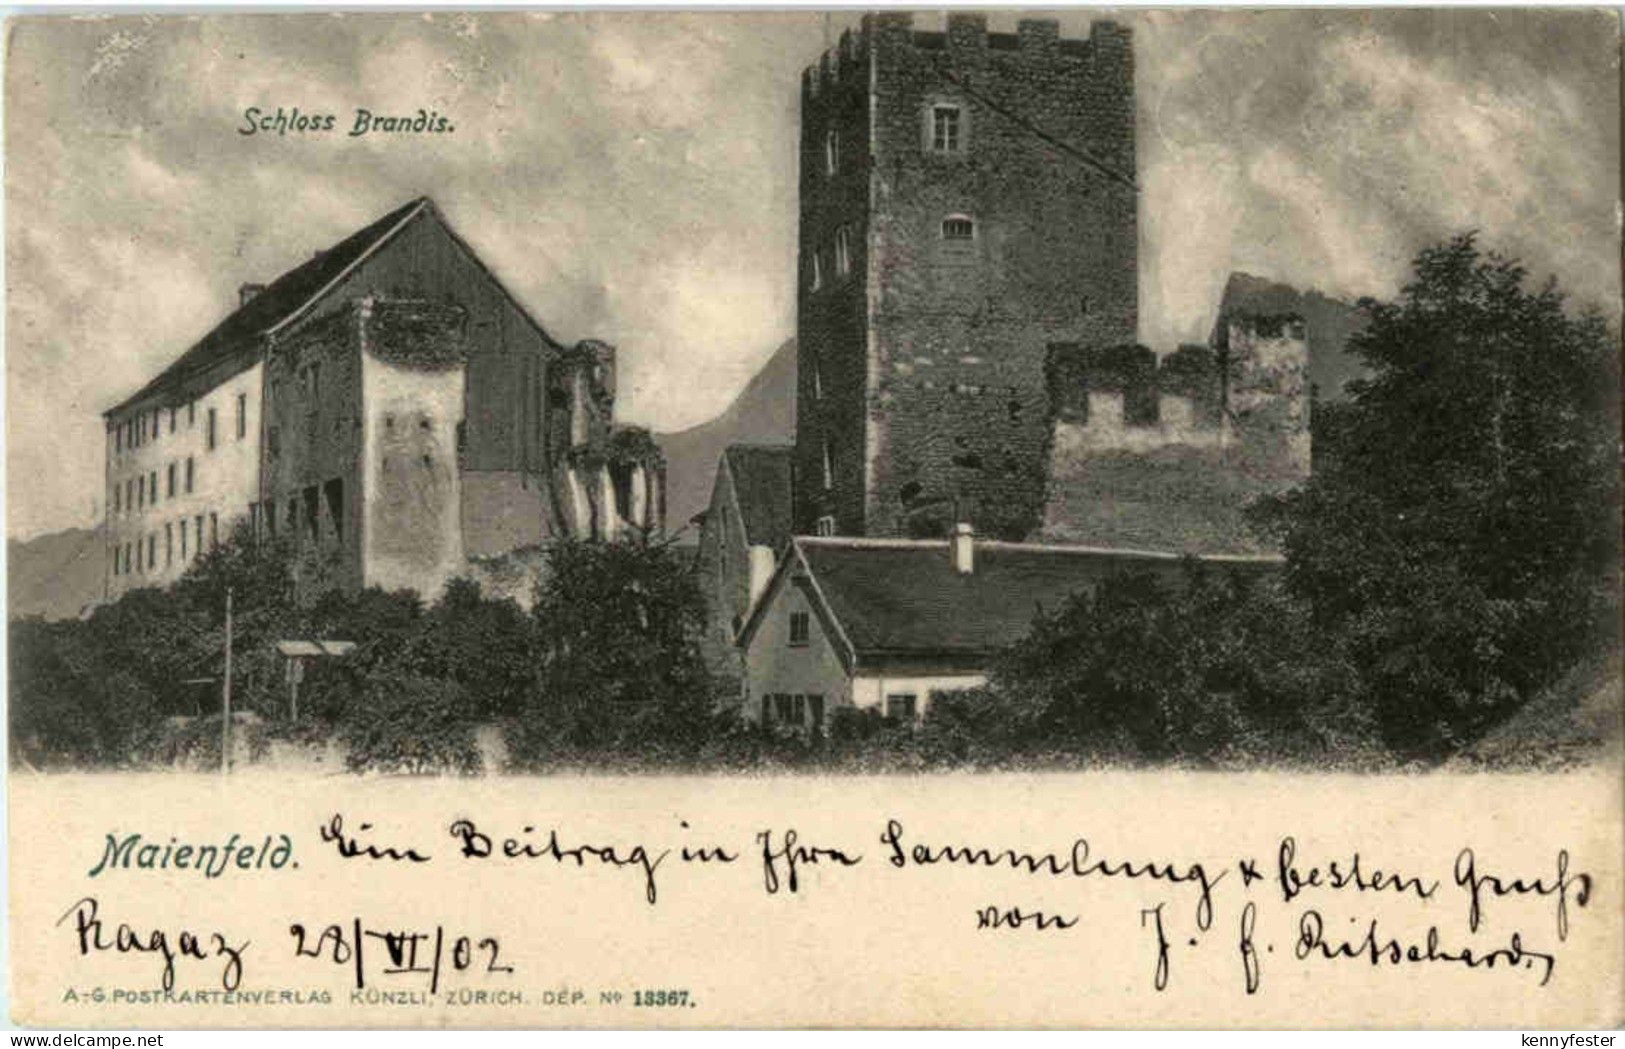 Schloss Brandis.
Maienfeld. Ein Beitrag in Ihre Sammlung & besten Gruß
Ragaz 28/VI/02 von J. F. Ritschard,
A.-G. POSTKARTENVERLAG KÜNZLI, ZÜRICH. DÉP. Nº 13367.
delcampe.net
kennyfester